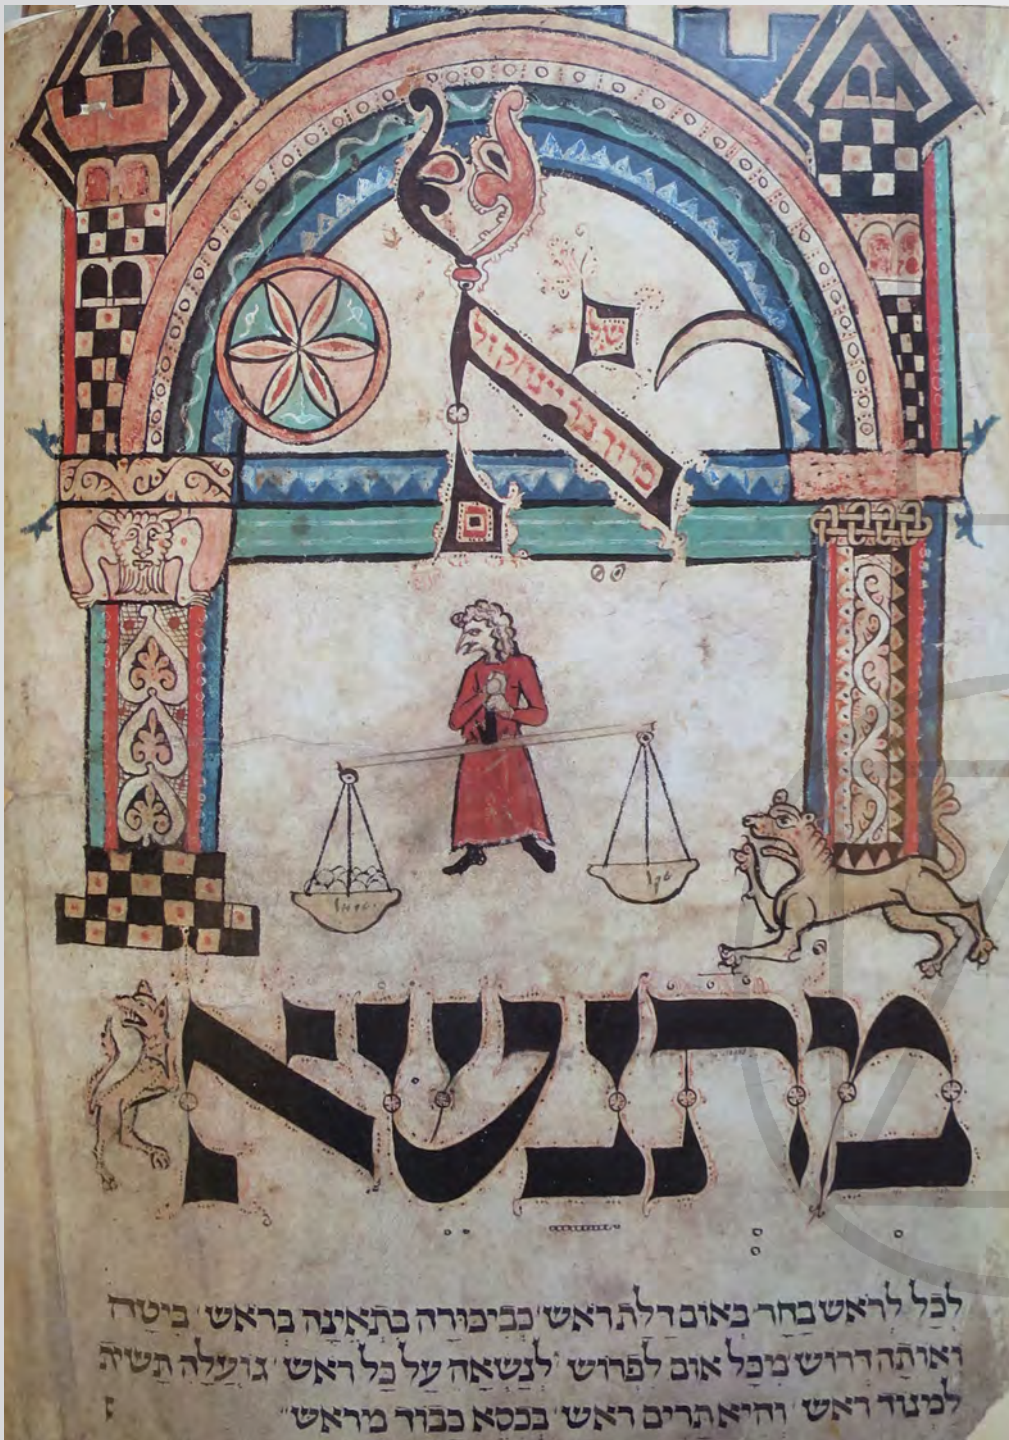 אל
ברוך
מתנשא
לכל לראש בחר באום דלת ראש' כביכורה בתאינה בראש' ביטה
ואותה דרוש' מכל אום לפרוש' לנשאה על כל ראש' גו עלה תשית
למנוד ראש' והיא תרים ראש' בכסא כבוד מראש"